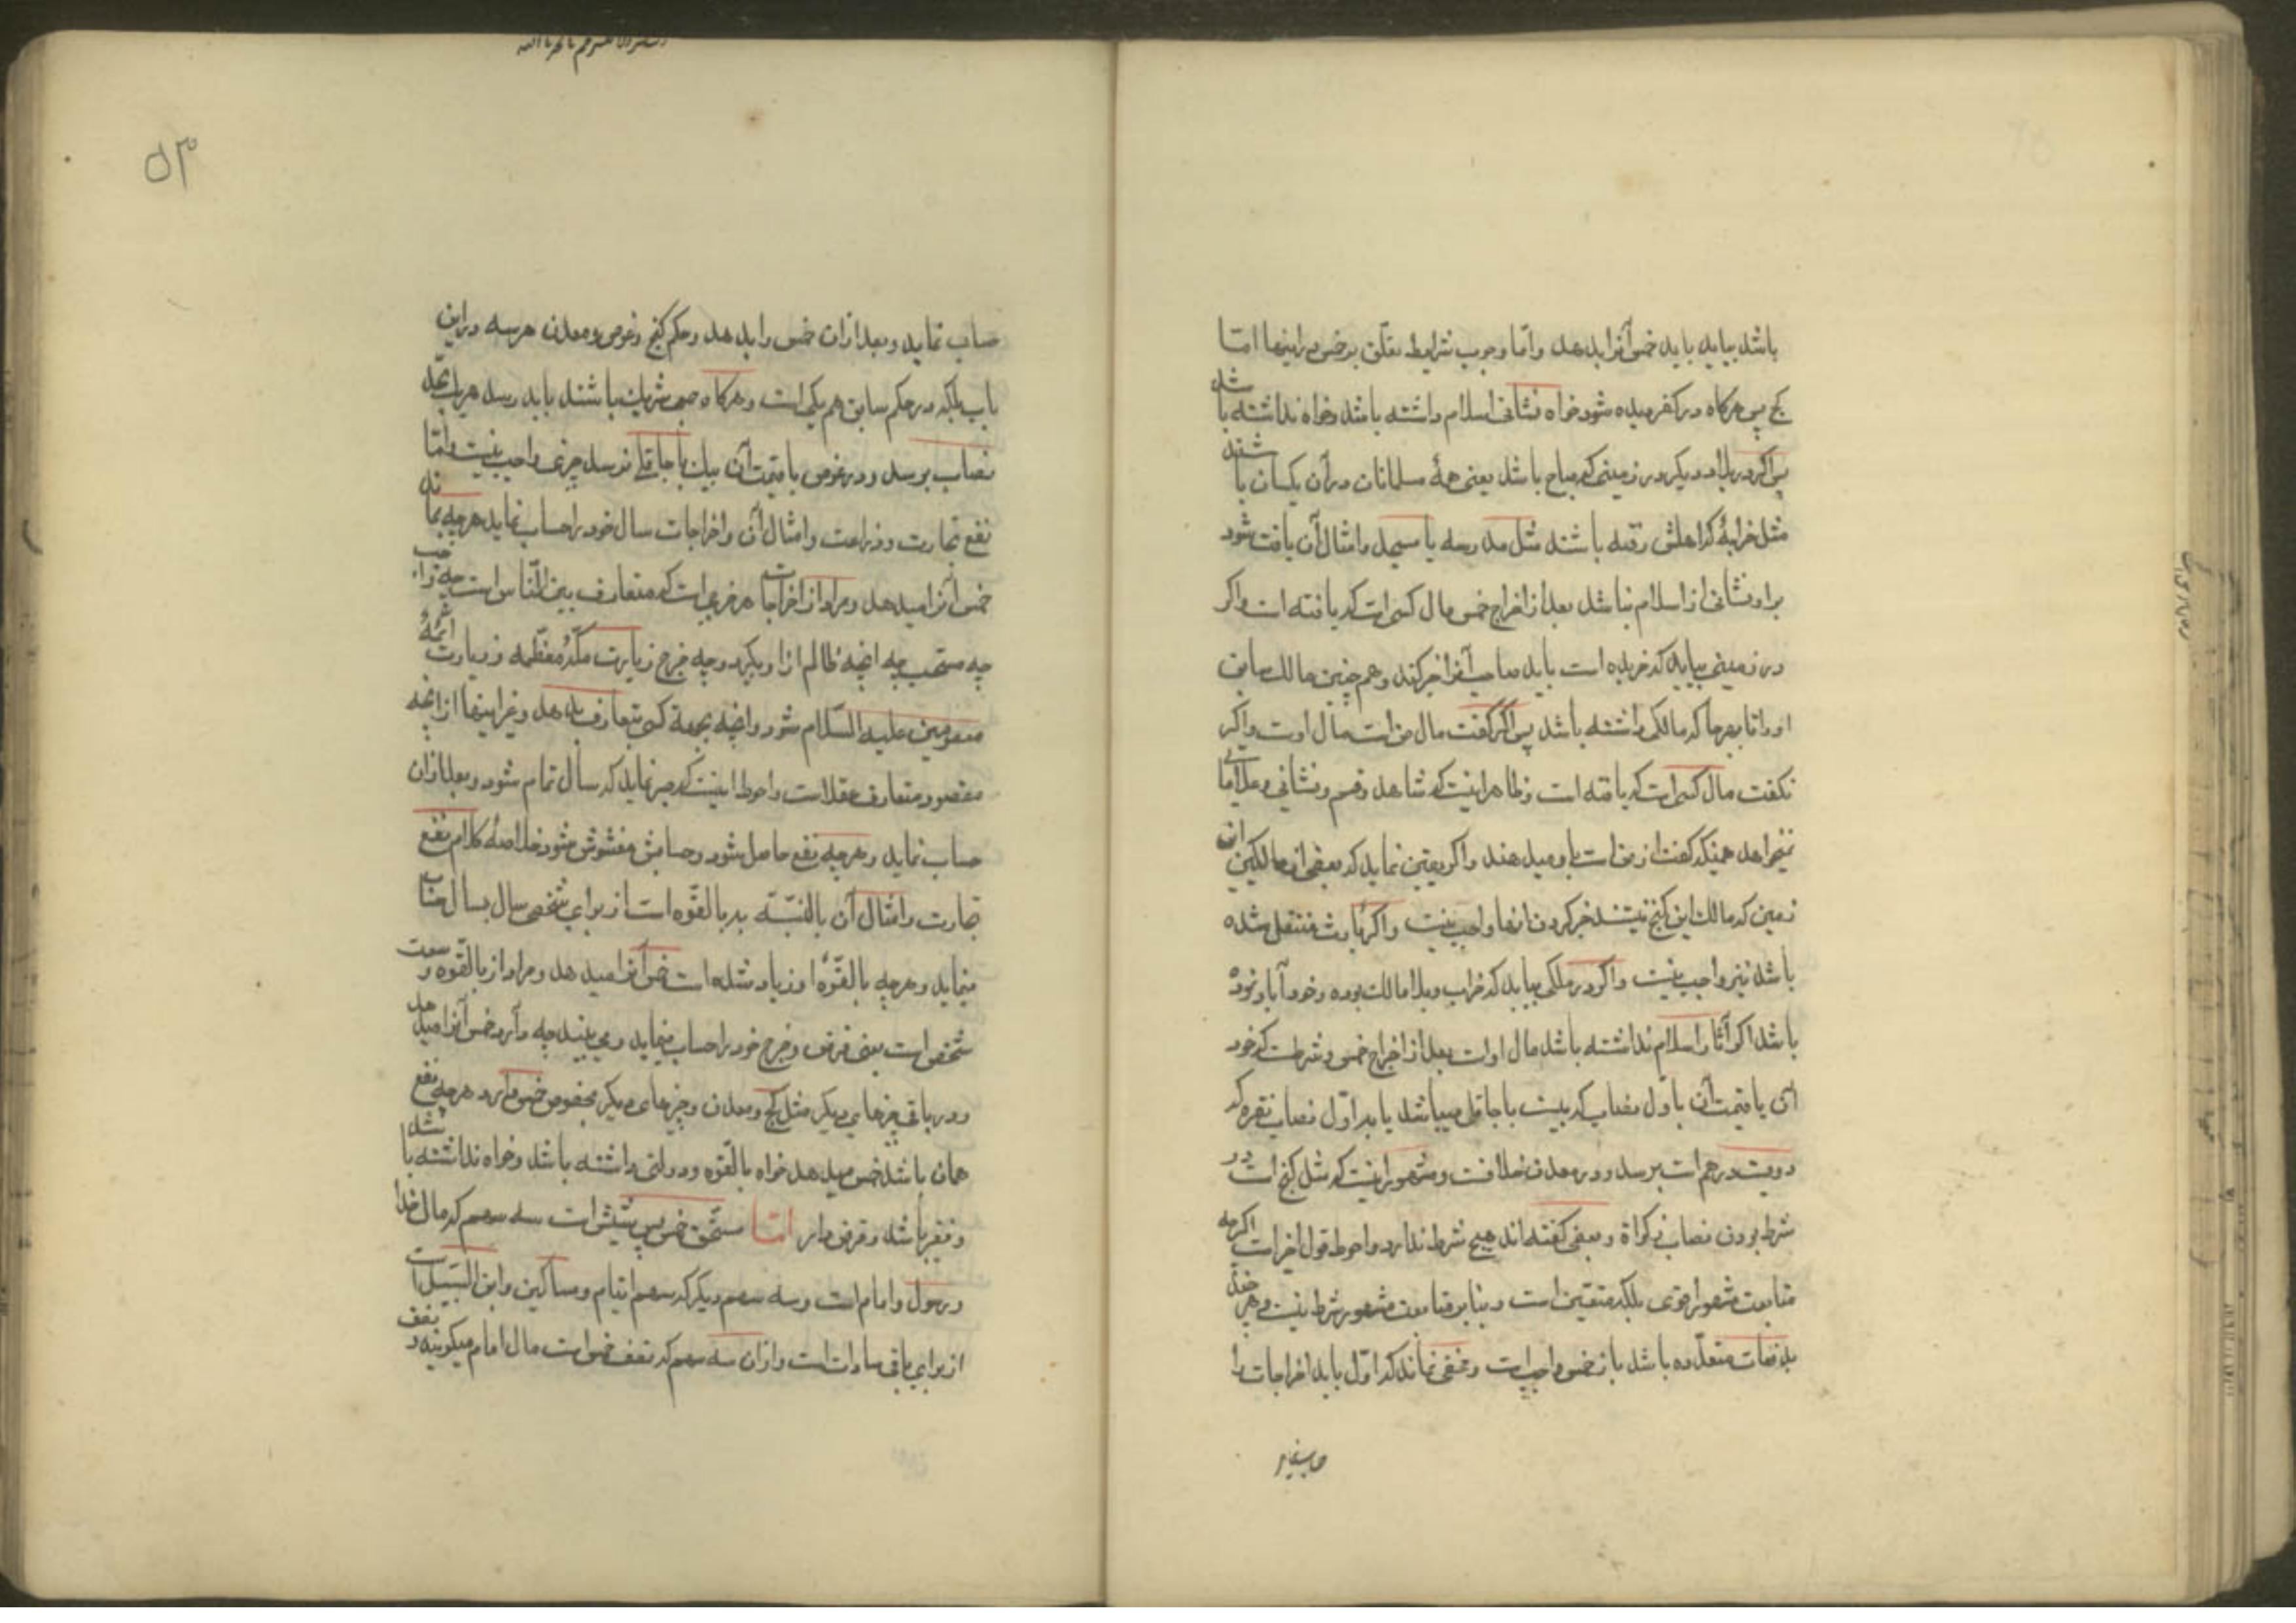 باشد بیابد باید خمس آنرا بدهد واما وجوب شرایط تعلق بر خمس در اینها اما
کنج پس هرکاه در کفر دیده شود خواه نشانی اسلام داشته باشد وخواه نداشته باشد
پس اکر در بلاد دیکر در زمینی که مباح باشد یعنی همهٔ مسلمانان در آن یکسان باشند
مثل خرابهٔ که اهلش رفته باشند مثل مدرسه یا مسجد وامثال آن یافت شود
براو نشانی از اسلام نباشد بعد از اخراج خمس مال کسی است که یافته است واکر
در زمینی بیابد که خریده است باید صاحب آنرا خبر کند وهم چنین مالک سابق
اورا تا بهر جا که مالکی داشته باشد پس اکر گفت مال من است مال اوست واکر
نکفت مال کسی است که یافته است وظاهر اینست که شاهد وقسم ونشانی وعلامتی
نمیخواهد همینکه کفت از من است باو میدهند واکر یقین نماید که بعضی از مالکین این
زمین که مالک این کنج نیستند خبر کردن آنها واجب نیست واکر بارث منتقل شده
باشد نیز واجب نیست واکر در ملکی بیابد که خراب وبلا مالک بوده وخود آباد نموده
باشد اکر آثار اسلام نداشته باشد مال اوست بعد از اخراج خمس وشرطست که خود
آن یا قیمت آن باول نصاب که بیست باجاقلی میباشد یا به اول نصاب نقره که
دویست درهم است برسد ودر معدن خلافست ومشهور اینست که مثل کنج است در
شرط بودن نصاب زکواة وبعضی کفته اند هیچ شرط ندارد واحوط قول اخر است اکرچه
متابعت مشهور اقوی بلکه متعین است وبنابر متابعت مشهور شرط نیست وهر چند
بدفعات متعدده باشد باز خمس واجب است ومخفی نماند که اول باید اخراجات را
حساب نماید
۵۳
حساب نماید وبعد از ان خمس را بدهد وحکم کنج وغوص ومعدن هر سه در این
باب بلکه در حکم سابق هم یکی است وهرکاه جمعی شریک باشند باید رسد هر یک بحد
نصاب برسد ودر غوص تا قیمت آن بیک باجاقلی نرسد چیزی واجب نیست واما
نفع تجارت وزراعت وامثال آن واخراجات سال خود را حساب نماید هرچه بماند
خمس آنرا میدهد ومراد از اخراجات هر خرجی است که متعارف بین الناس است چه واجب
چه مستحب چه انچه ظالم از او بکیرد وچه خرج زیارت مکهٔ معظمه وزیارت ائمهٔ
معصومین علیه السلام شود وانچه بجهة کسی بتعارف بدهد وغیر اینها از انچه
مقصود متعارف عقلاست واحوط اینست که صبر نماید که سال تمام شود وبعد از ان
حساب نماید وهرچه نفع حاصل شود وحسابش مغشوش نشود خلاصهٔ کلام نفع
تجارت وامثال آن بالنسبة به بالقوه است از برای شخصی سال بسال حساب
مینماید وهرچه بالقوهٔ او زیاد شده است خمس آنرا میدهد ومراد از بالقوه وسعت
شخص است یعنی قرض وخرج خود را حساب مینماید ومی بیند چه دارد خمس آنرا میدهد
ودر باقی چیزهای دیکر مثل کنج ومعدن وچیزهای دیکر بخصوص خمس دارد هرچه نفع
همان باشد خمس میدهد خواه بالقوه ودولتی داشته باشد وخواه نداشته باشد
وفقیر باشد وقرض دار اما مستحق خمس پس شش است سه سهم که مال خدا
ورسول وامام است وسه سهم دیکر که سهم ایتام ومساکین وابن السبیل است
از برای باقی سادات است واز ان سه سهم که نصف خمس است مال امام میکویند ونصف